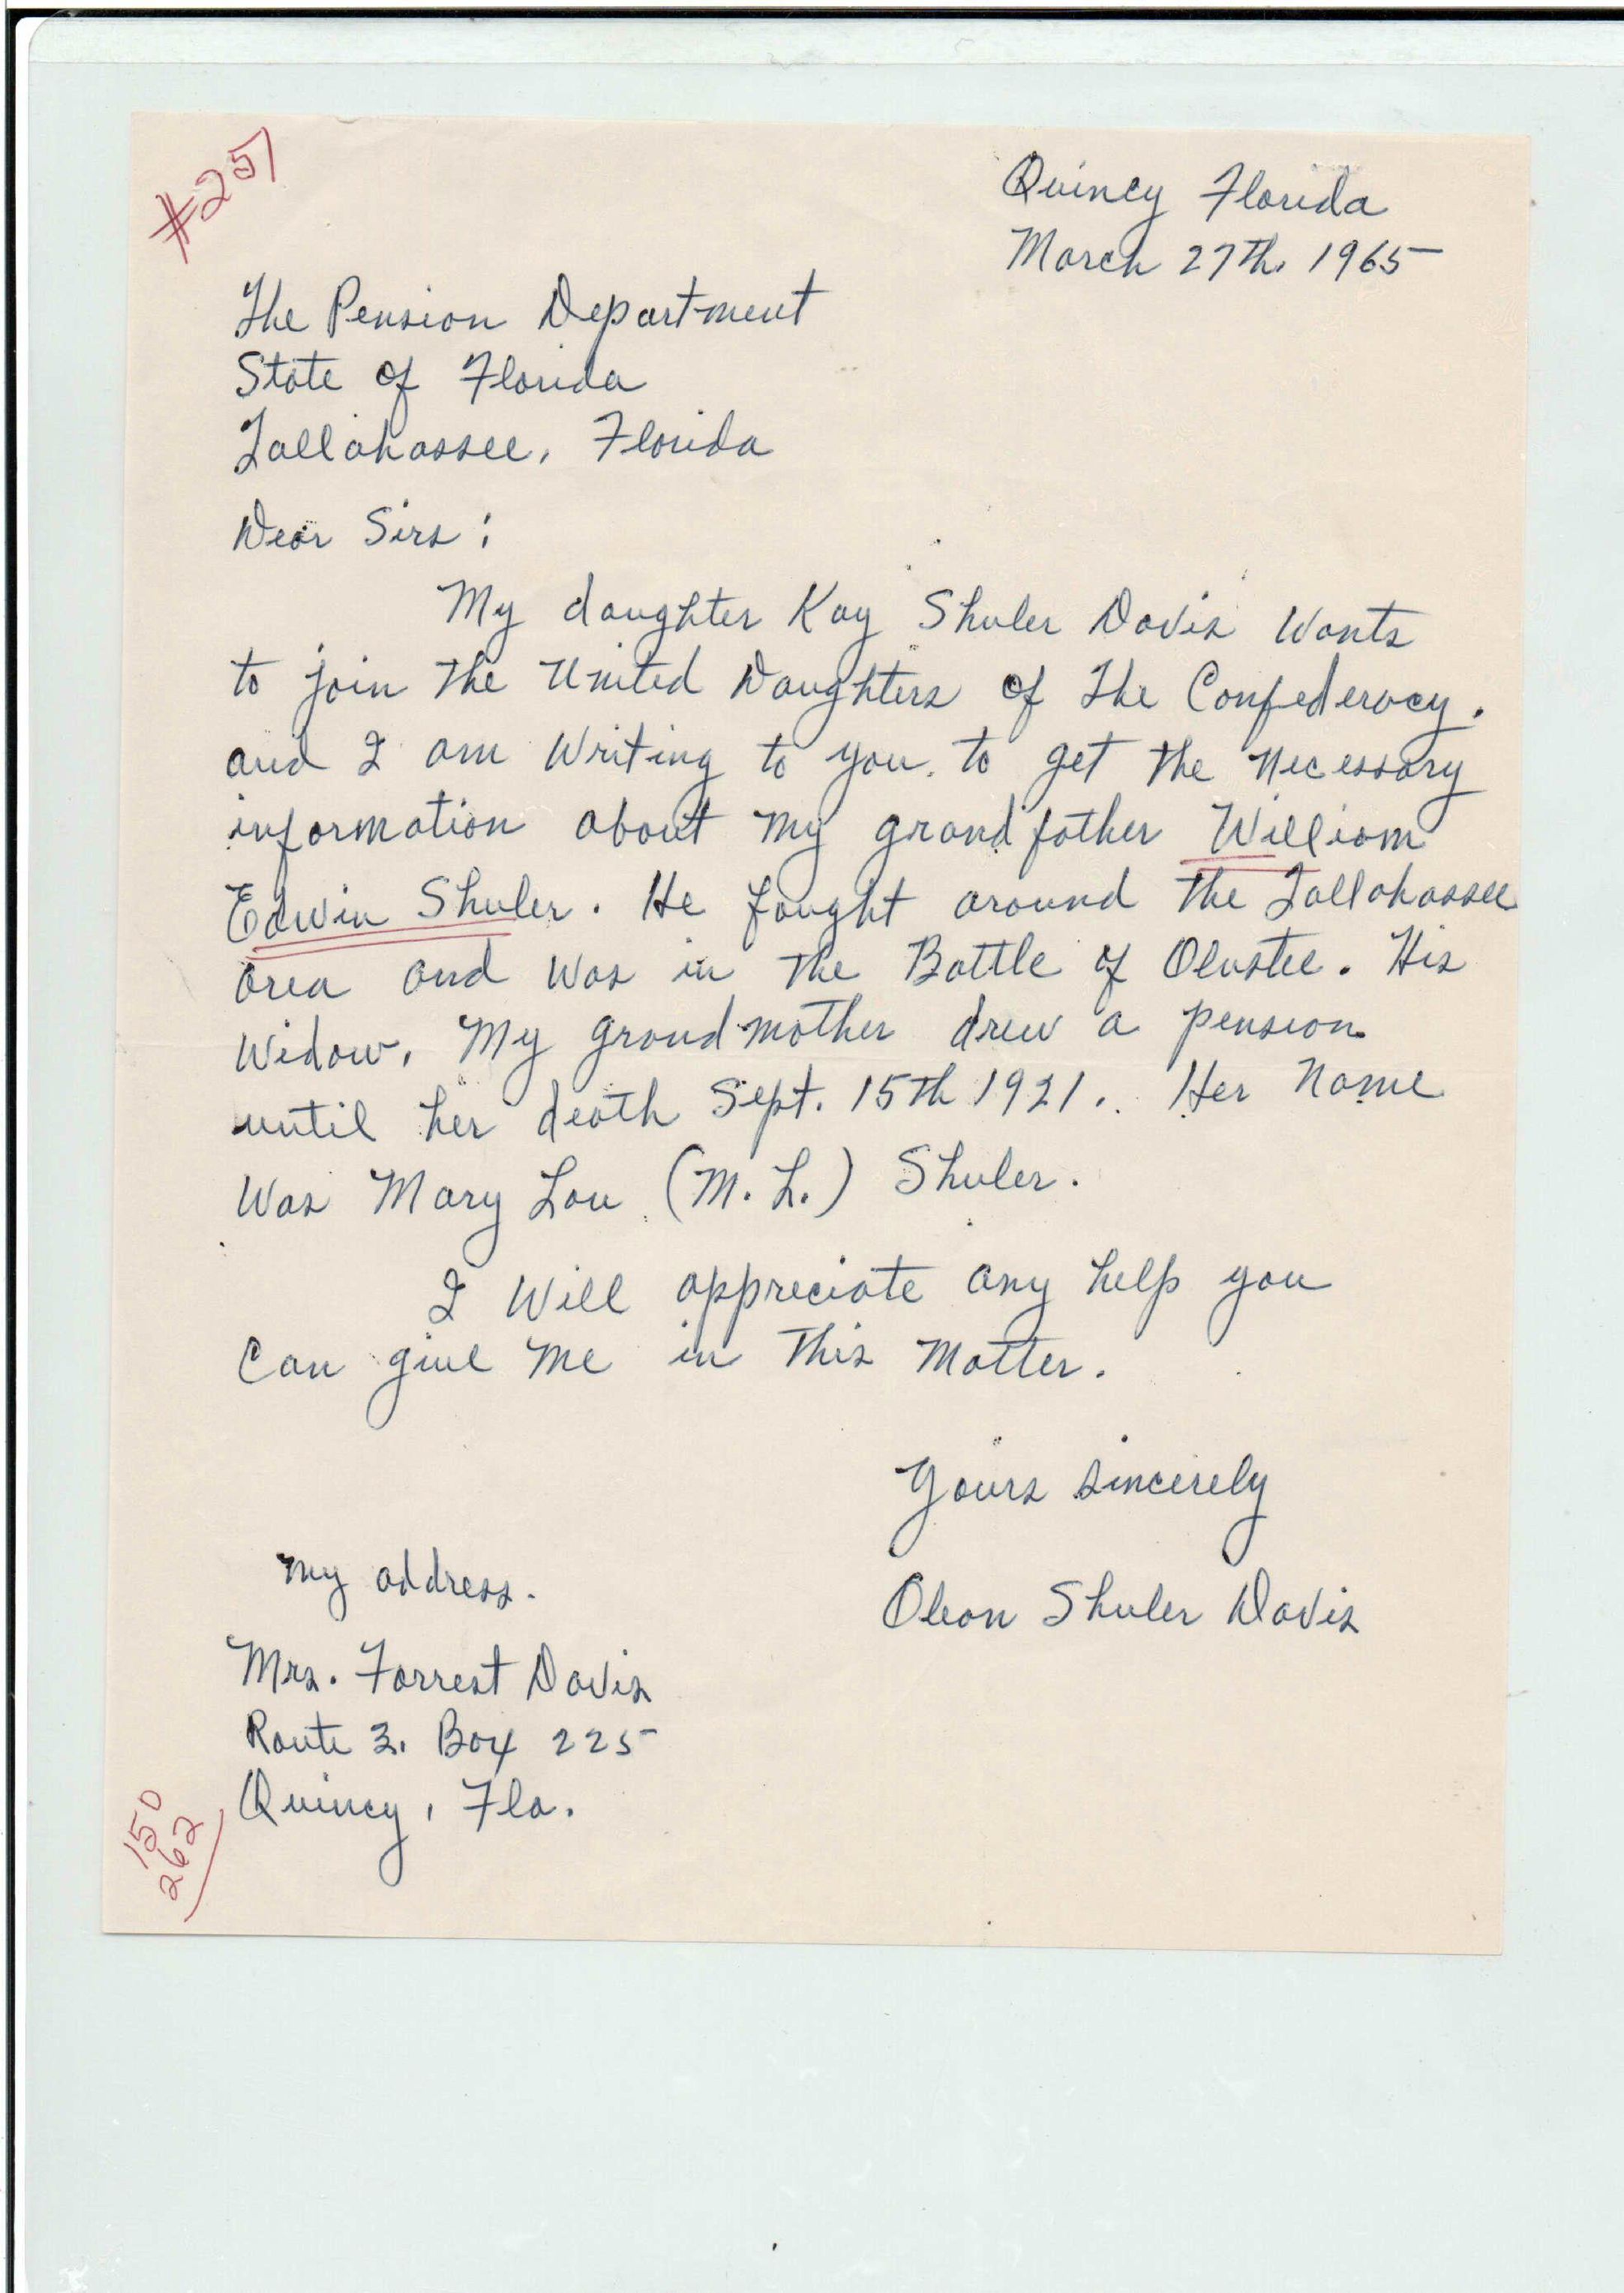 #251
Quincy Florida
March 27th. 1965
The Pension Department
State of Florida
Tallahassee, Florida
Dear Sirs:
My daughter Kay Shuler Davis Wants
to join the United Daughters of The Confederacy.
and I am Writing to you. to get the Necessary
information about my grandfather William
Edwin Shuler. He fought around the Tallahassee
area and Was in the Battle of Olustee. His
Widow, My grandmother drew a pension
until her death Sept. 15th 1921. Her Name
Was Mary Lou (M. L.) Shuler.
I Will appreciate any help you
Can give Me in This Matter.
Yours sincerely
Oleon Shuler Davis
My address.
Mrs. Forrest Davis
Route 3. Box 225
Quincy, Fla.
150
262